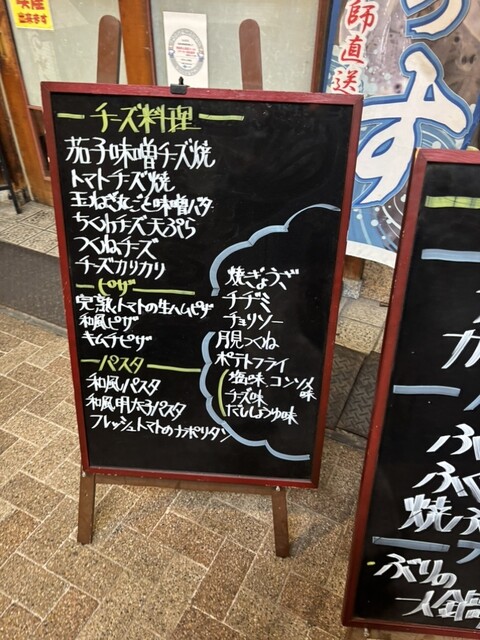 喫煙
出来ます
師直送
す
ーチーズ料理ー
茄子味噌チーズ焼
トマトチーズ焼
玉ねぎ丸ごと味噌バタ
ちくわチーズ天ぷら
つくねチーズ
チーズカリカリ
ーピザー
完熟トマトの生ハムピザ
和風ピザ
キムチピザ
ーパスタ
和風パスタ
和風明太子パスタ
フレッシュトマトのナポリタン
焼ぎょうざ
チヂミ
チョリソー
月見つくね
ポテトフライ
塩味、コンソメ味
チーズ味
だししょうゆ味
焼ふ
ぶりの
一人鍋